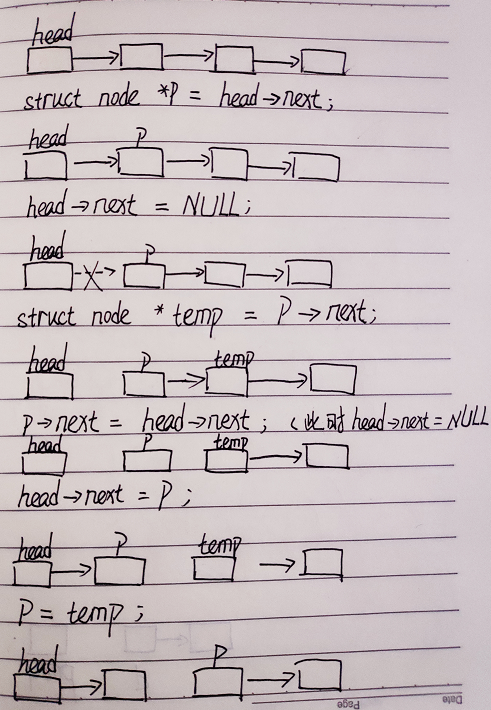 head
struct node *P = head→next;
head P
head→next = NULL;
head P
struct node * temp = P→next;
head P temp
P→next = head→next; (此时 head→next = NULL
head P temp
head→next = P;
head P temp
P = temp;
head P
Page Date